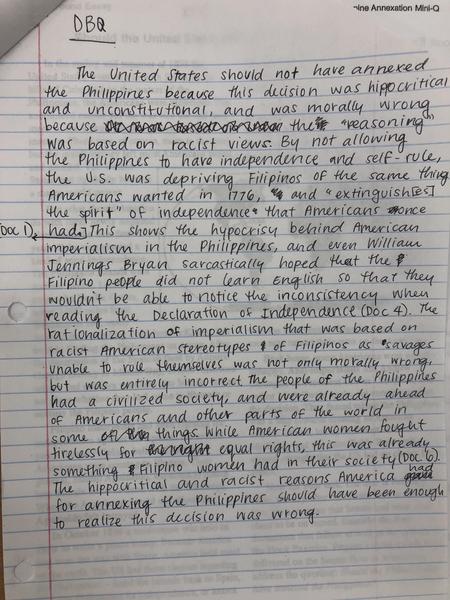 ine Annexation Mini-Q
DBQ
The United States should not have annexed
the Philippines because this decision was hippocritical
and unconstitutional, and was morally wrong
because the "reasoning"
was based on racist views. By not allowing
the Philippines to have independence and self-rule,
the U.S. was depriving Filipinos of the same thing
Americans wanted in 1776, and "extinguish[es]
the spirit" of independence that Americans once
(Doc 1) had. This shows the hypocrisy behind American
imperialism in the Philippines, and even William
Jennings Bryan sarcastically hoped that the
Filipino people did not learn English so that they
wouldn't be able to notice the inconsistency when
reading the Declaration of Independence (Doc 4). The
rationalization of imperialism that was based on
racist American stereotypes of Filipinos as savages
unable to role themselves was not only morally wrong,
but was entirely incorrect the people of the Philippines
had a civilized society, and were already ahead
of Americans and other parts of the world in
some things. While American women fought
tirelessly for equal rights, this was already
something Filipino women had in their society (Doc 6).
The hippocritical and racist reasons America had
for annexing the Philippines should have been enough
to realize this decision was wrong.